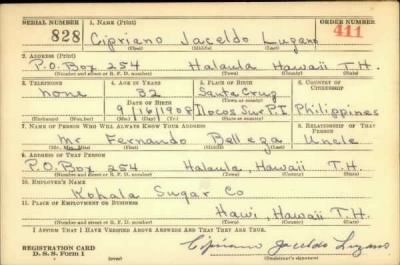 SERIAL NUMBER 1. NAME (Print) ORDER NUMBER
828 Cipriano Jaceldo Lugano 411
(First) (Middle) (Last)
2. ADDRESS (Print)
P.O. Box 254 Halaula Hawaii T.H.
(Number and street or R. F. D. number) (Town) (County) (State)
3. TELEPHONE 4. AGE IN YEARS 5. PLACE OF BIRTH 6. COUNTRY OF CITIZENSHIP
none 32 Santa Cruz
DATE OF BIRTH (Town or county)
9/16/1908 Ilocos Sur P.I Philippines
(Mo.) (Day) (Yr.) (State or country)
7. NAME OF PERSON WHO WILL ALWAYS KNOW YOUR ADDRESS 8. RELATIONSHIP OF THAT PERSON
Mr Fernando Belleza Uncle
(Mr., Mrs., Miss) (First) (Middle) (Last)
9. ADDRESS OF THAT PERSON
P.O. Box 254 Halaula, Hawaii T.H.
(Number and street or R. F. D. number) (Town) (County) (State)
10. EMPLOYER'S NAME
Kohala Sugar Co
11. PLACE OF EMPLOYMENT OR BUSINESS
Hawi, Hawaii T.H.
(Number and street or R. F. D. number) (Town) (County) (State)
I AFFIRM THAT I HAVE VERIFIED ABOVE ANSWERS AND THAT THEY ARE TRUE.
REGISTRATION CARD
D. S. S. Form 1 Cipriano Jaceldo Lugano
(Registrant's signature)